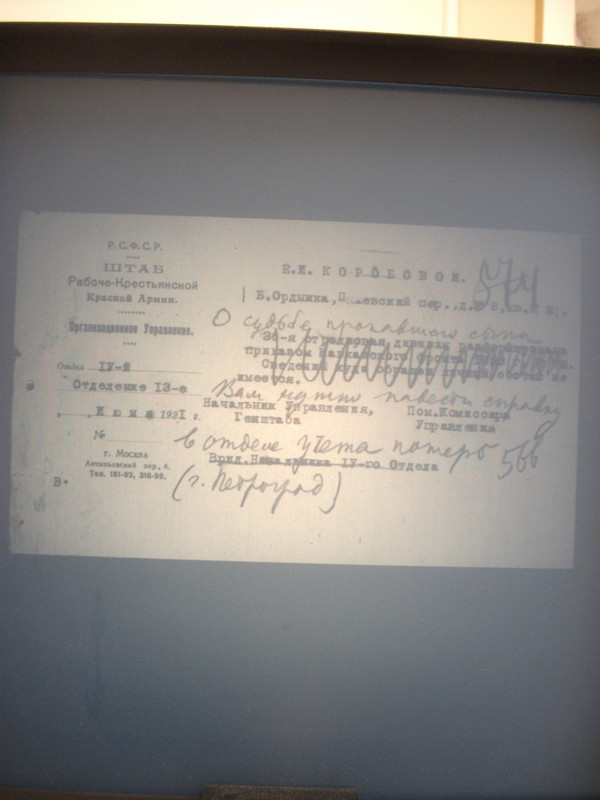 Р.С.Ф.С.Р.
ШТАБ
Рабоче-Крестьянской
Красной Армии.
Организационное Управление.
Отдел IУ-й
Отделение 13-е
Июня 1921 г.
№
г. Москва
Антипьевский пер., 6.
Тел. 151-62,
В.
Е.И. КОРОБОВОЙ.
574
Б.Ордынка, пер.,
О судьбе пропавшего сына
30-я стрелковая дивизия расформирована
приказом Кавказского фронта
Сведений куда обращен не
имеется.
Вам нужно навести справку
Начальник Управления, Пом.Комиссара
Генштаба Управления
в отделе учета потерь 566
Врид.Начальника IУ-го Отдела
(г. Петроград)